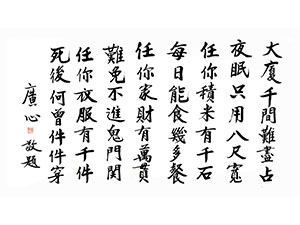 大廈千間難盡占
夜眠只用八尺寬
任你積米有千石
每日能食幾多餐
任你家財有萬貫
難免不進鬼門関
任你衣服有千件
死後何曾件件穿
廣心
敬題